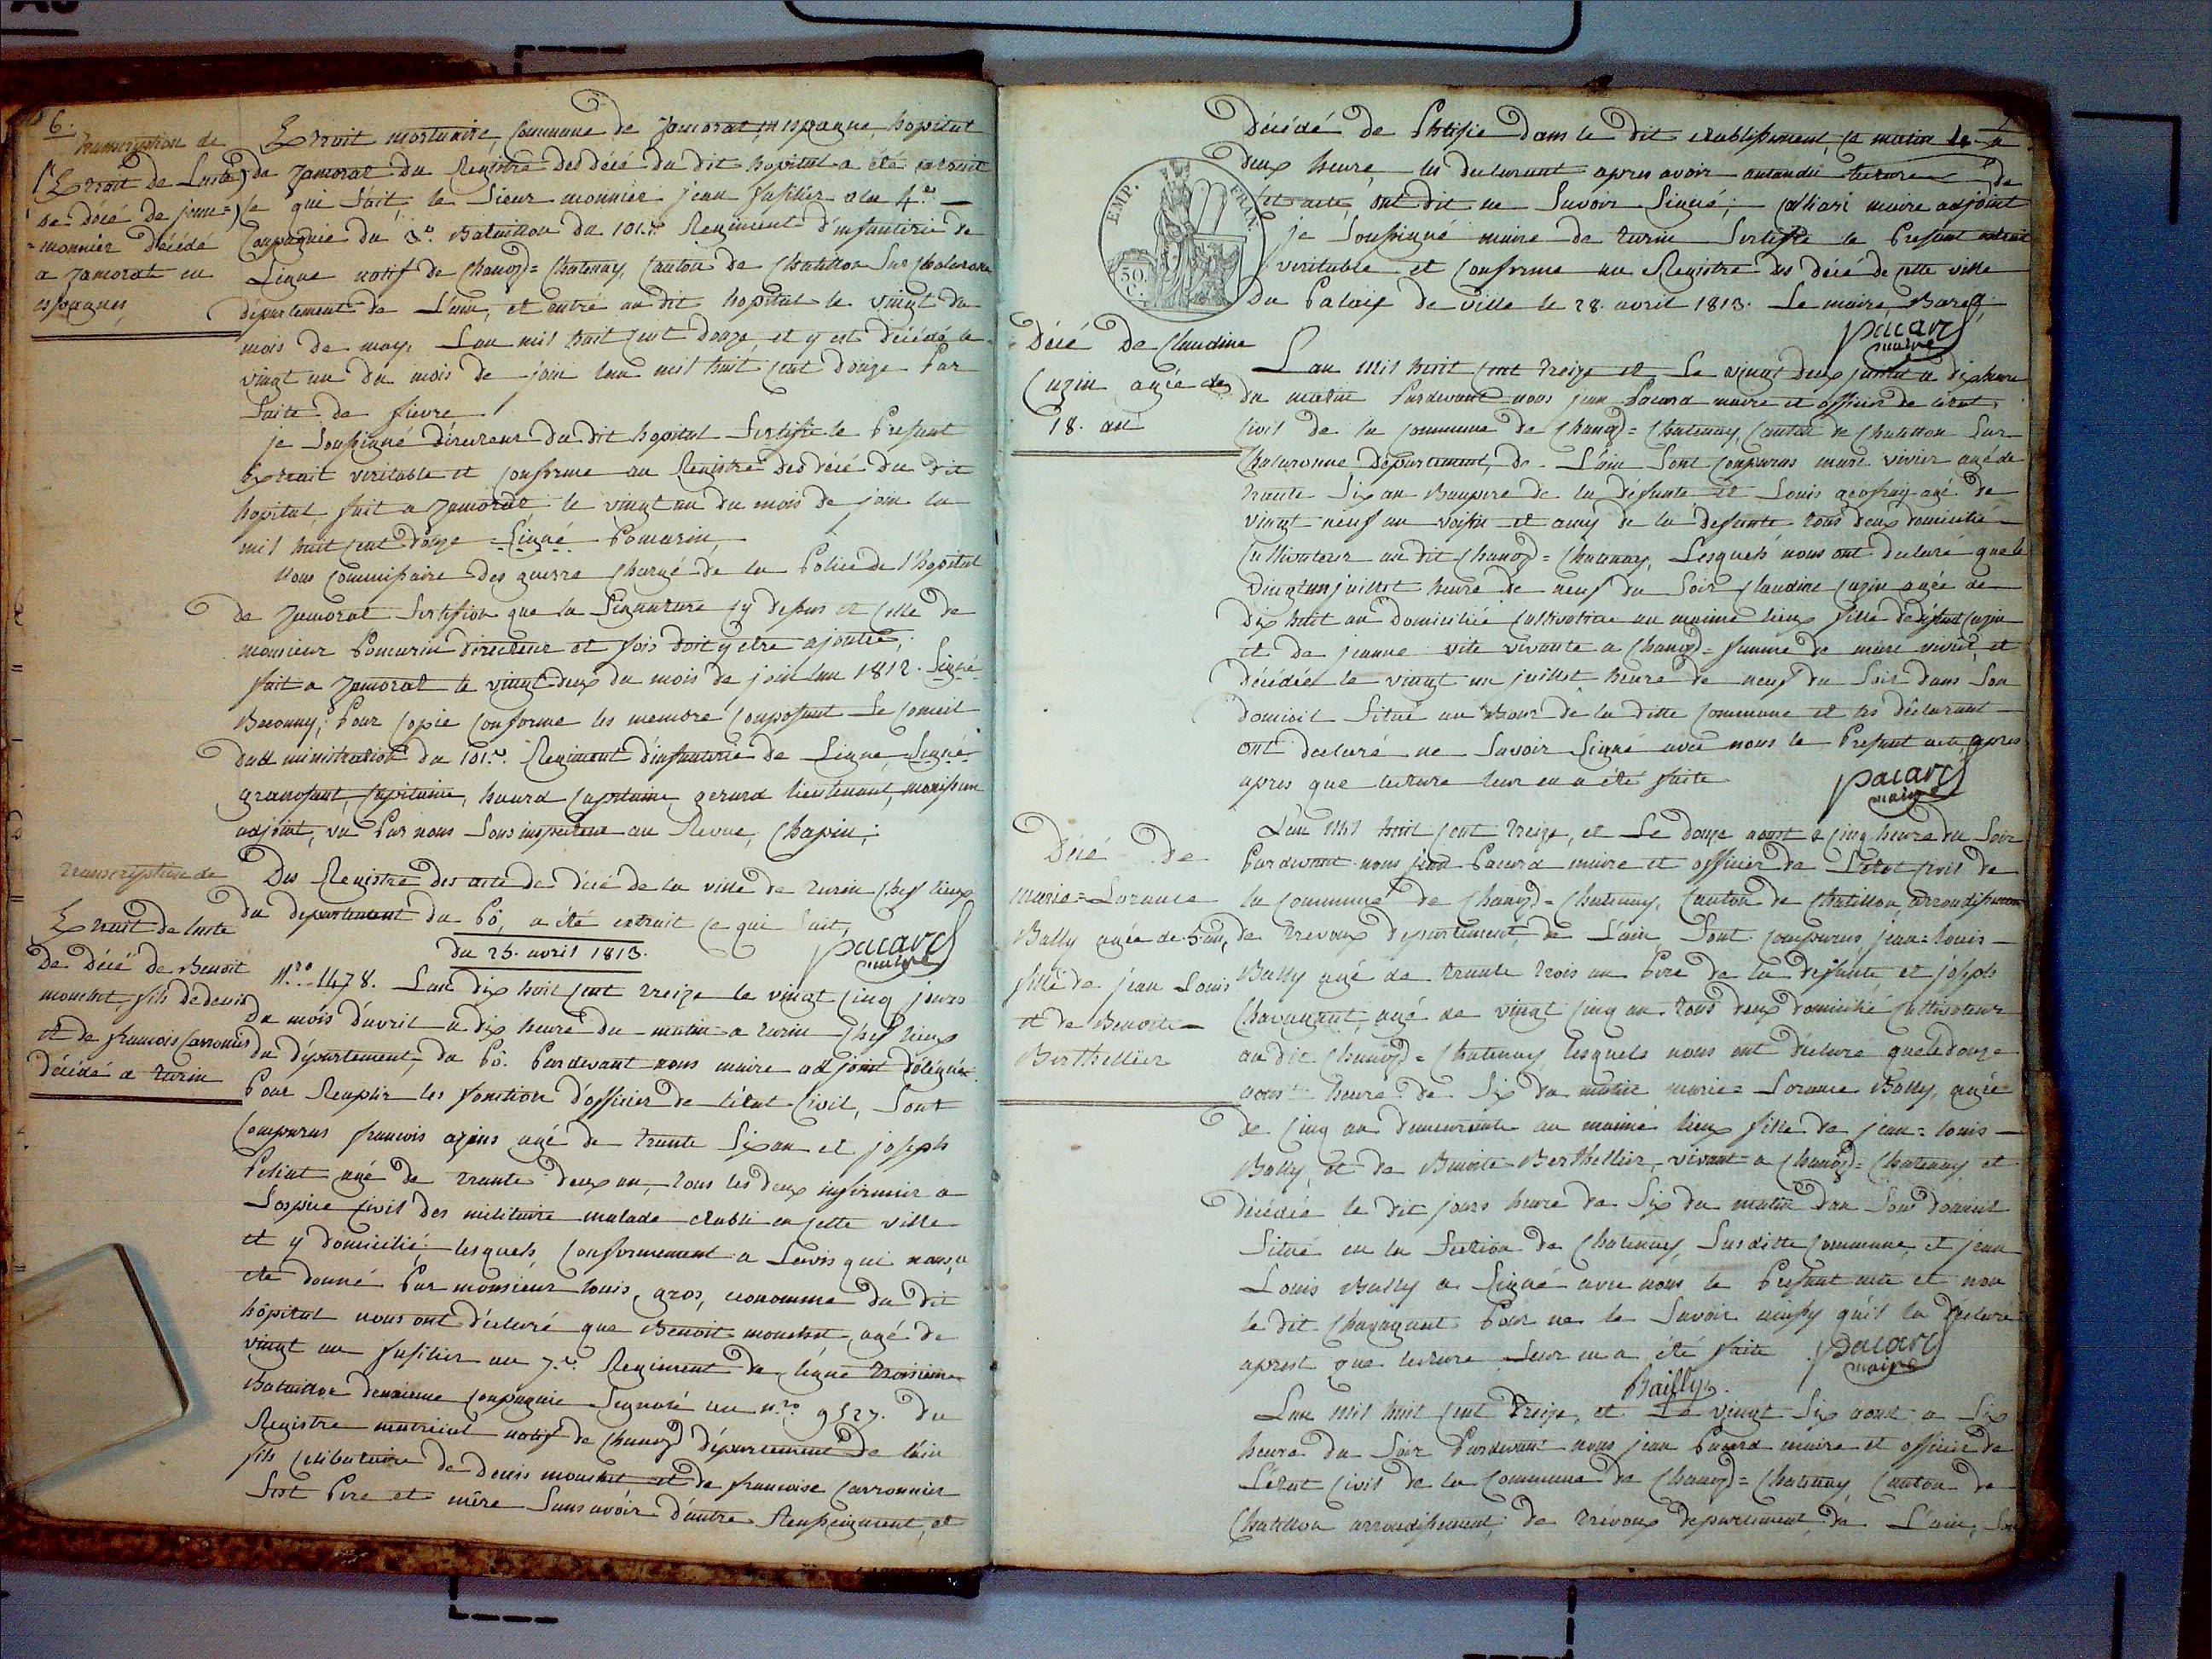 6.
transcription de
l'Extrait de Lacte
de décé de jean=
=monnier décédé
a Zamorat en
espagnes
Extrait mortuaire, Commune de Zamorat en espagne, hopital
de Zamorat du Registre des décé du dit hopital a été extrait
ce qui Suit, le Sieur monnier jean fusilier a la 4.e
Compagnie du 3.e Bataillon du 101.e Regiment d'infanterie de
Ligne natif de Chanoz=Chatenay, Canton de Chatillon Sur Chalaronne
département de L'ain, et entré au dit hopital le vingt du
mois de may, Lan mil huit Cent douze, et y est décédé le
vingt un du mois de join lan mil huit Cent douze Par
Suite de fievre
je Soussigné directeur du dit hopital Sertifie le Present
Extrait veritable et Conforme au Registre des décé du dit
hopital, fait a Zamorat le vingt un du mois de join la
mil huit Cent douze =Signé Pomarin,
Nous Commissaire des guerre Chargé de la Police de l'hopital
de Zamorat Sertifion que la Signature Cy dessus et Celle de
monsieur Pomarin directeur et fois doit y etre ajoutée;
fait a Zamorat le vingt deux du mois de join lan 1812. Signé
Pour Copie Conforme les membre Composant Le Conseil
dad ministration du 101.e Regiment d'infanterie de Ligne, Signé
Capitaine, huard Capitaine, gerard lieutenant,
adjoint, vu Par nous Sous inspecteur au Revue, Chapin;
transcription de
Extrait de Lacte
De Décé de Benoit
mouchet, fils de denis
et de francois Carronnier
Décédé a turin
Des Registre des acte de décé de la ville de turin Chef lieux
du departement du Pô, a été extrait Ce qui Suit,
du 25. avril 1813.
pacard
maire
N.ro 1478. Lan dix huit Cent treize le vingt Cinq jours
du mois d'avril a dix heure du matin a turin Chef lieux
du département, du Pô. Pardevant nous maire adjoint délégué
Pour Remplir les fonction d'officier de l'état Civil, Sont
Comparus francois agé de trante Six an et joseph
Peliat agé de trante deux an, tous les deux infirmier a
Lospice Civil des militaire malade etabli en Cette ville
et y domicilié; lesquels, Conformement a Lavis qui nous a
ete donné Par monsieur louis, gros, economme du dit
hôpital nous ont déclaré que Benoit mouchet, agé de
vingt un fusilier au 7.e Regiment de ligne troisieme
Bataillon deuxieme Compagnie Signalé au n.ro 9527. du
Registre matricul natif de Chanoz département de l'ain
fils Celibataire de denis mouchet et de francoise Carronnier
Sest Pere et mère Sans avoir d'autre Renseignement, et
Décédé de Phtisie dans le dit etablissement, Ce matin a
deux heure, les declarant apres avoir antandu lecture de
Cet acte, ont dit ne Savoir Signé; Calliari maire adjoint
je Soussigné maire de turin Sertifie le Present extrait
veritable et Conforme au Registre des décé de cette ville
du Palais de ville le 28. avril 1813. Le maire,
EMP. FRAN.
50 C.
pacard
maire
Décé De Claudine
Cuzin agée de
18. an
Lan mil huit Cent treize et Le vingt deux juillet a dix heure
du matin Pardevant nous jean Pacard maire et officier de l'état
Civil de la Commune de Chanoz=Chatenay, Canton de Chatillon Sur
Chalaronne département, de L'ain Sont Comparus marc vivier agé de
trante Six an Baupere de la défunte et Louis geofray agé de
vingt neuf an voisin et amy de la défunte tous deux domicilié
Cultivateur au dit Chanoz=Chatenay, Lesquels nous ont declaré que le
vingt un juillet heure de neuf du Soir Claudine Cuzin agée de
dix huit an domiciliée Cultivatrice au maime lieux fille de défunt Cuzin
et de jeanne vite vivante a Chanoz=femme de marc vivier, et
décédée le vingt un juillet heure de neuf du Soir dans Son
domicil Situé au Bourg de la ditte Commune et les déclarant
ont declaré ne Savoir Signé avec nous le Present acte, apres
apres que lecture leur en a été faite
pacard
maire
Décé de
marie=Lorance
Bally agée de 5 an,
fille de jean Louis
et de Benoite
Berthellier
Lan mil huit Cent treize, et Le douze aoust a Cinq heure du Soir
Pardevant nous jean Pacard maire et officier de L'état Civil de
la Commune de Chanoz=Chatenay, Canton de Chatillon arrondissement
de trevoux département, de L'ain, Sont Comparus, jean=louis
Bally agé de trante trois an Pere de la défunte, et joseph
Chavagnant, agé de vingt Cinq an tous deux domicilié Cultivateur
au dit Chanoz=Chatenay lesquels nous ont déclaré que le douze
aoust heure de Six du matin marie=Lorance Bally, agée
de Cinq an demeurante au maime lieux fille de jean=louis
Bally, et de Benoite Berthellier, vivant a Chanoz=Chatenay, et
décédée le dit jours heure de Six du matin dan Son domicil
Situé en la Section de Chatenay, Susditte Commune, et jean
Louis Bally a Signé avec nous le Present acte et non
le dit Chavagnant Pour ne le Savoir ainsy qu'il la déclaré
aprest que lecture leur en a été faite
pacard
maire
Bailly
Lan mil huit Cent treize, et Le vingt Six aout a Six
heure du Soir Pardevant nous jean Pacard maire et officier de
L'état Civil de la Commune de Chanoz=Chatenay Canton de
Chatillon arrondissement, de trévoux departement, de L'ain, Son